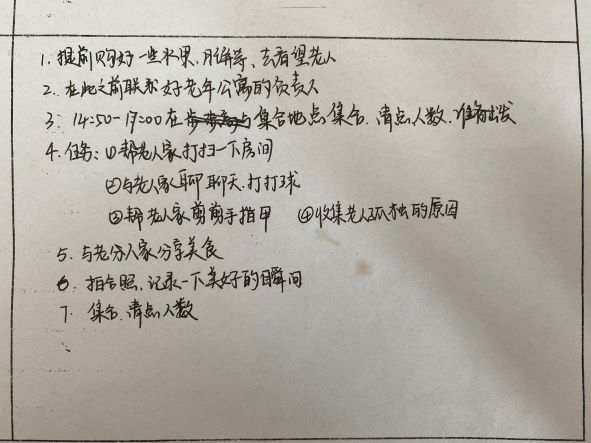 1. 提前购好一些水果、月饼等、去看望老人
2. 在此之前联系好老年公寓的负责人
3. 14:50-17:00在集合地点集合、清点人数、准备出发
4. 任务：①帮老人家打扫一下房间
②与老人家聊聊天、打打球
③帮老人家剪剪手指甲 ④收集老人孤独的原因
5. 与老人家分享美食
6. 拍合照、记录一下美好的瞬间
7. 集合、清点人数